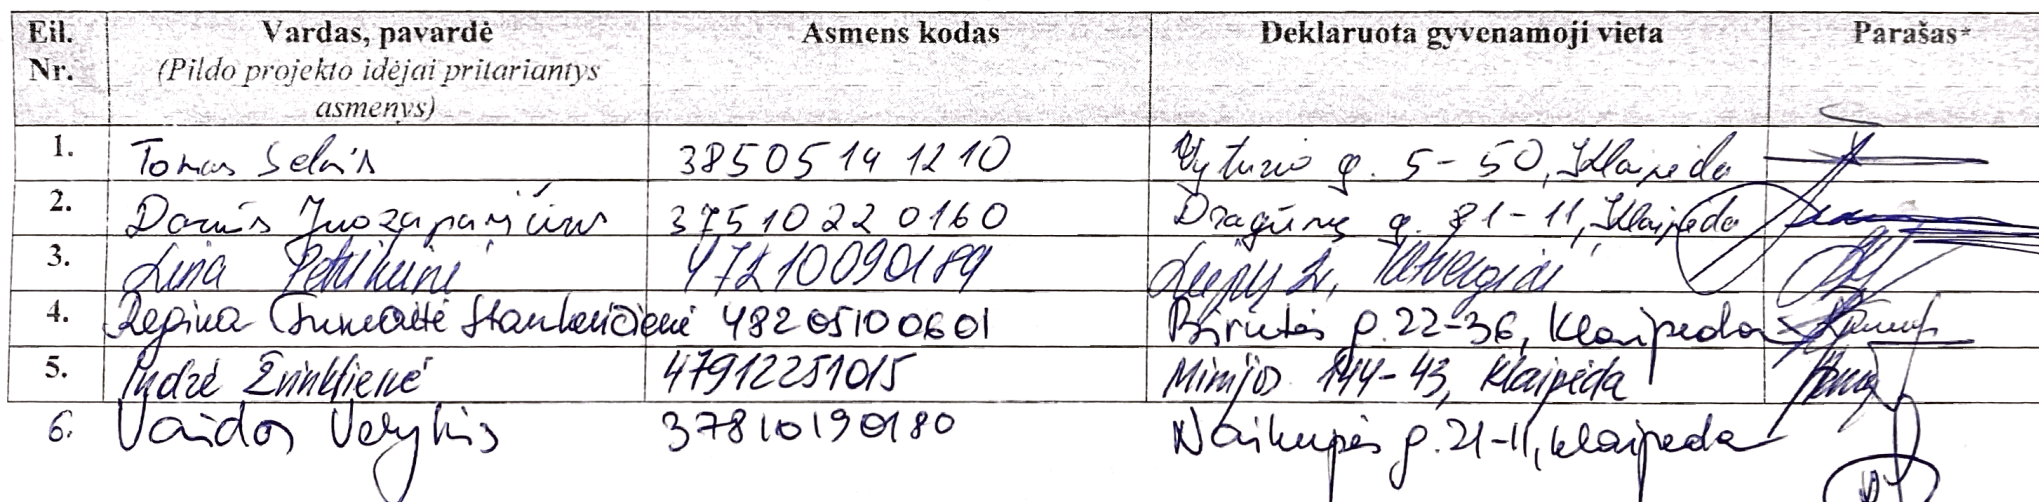 Eil. Nr. Vardas, pavardė (Pildo projekto idėjai pritariantys asmenys) Asmens kodas Deklaruota gyvenamoji vieta Parašas*
1. Tomas 38505141210 Vyturio g. 5-50, Klaipėda
2. Darius Juozapavičius 37510220160 Dragūnų g. 81-11, Klaipėda
3. Lina 47210090189 Liepų Ketvergiai
4. Regina Stankevičienė 48205100601 Birutės g. 22-36, Klaipėda
5. Indrė 47912251015 Minijos 144-43, Klaipėda
6. Vaidas 37810190180 Naikupės g. 21-11, Klaipėda